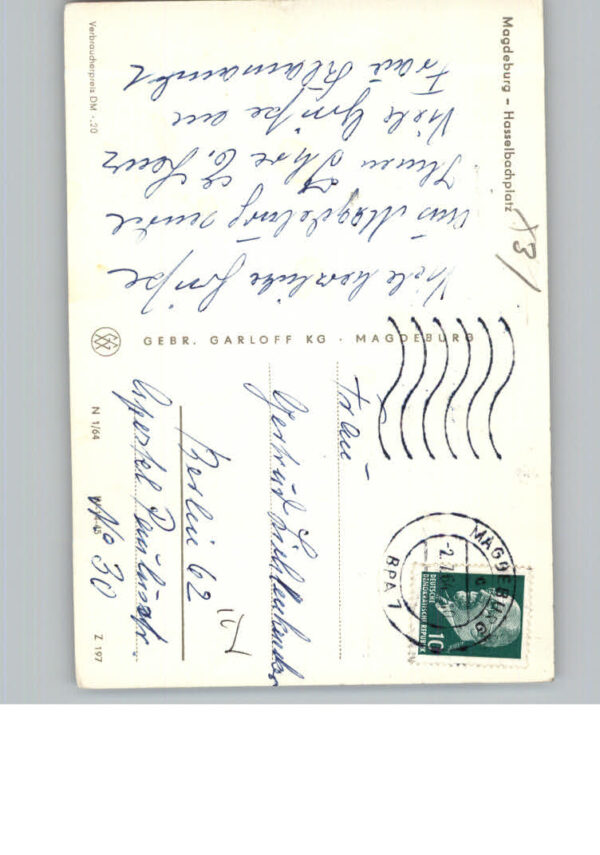 Magdeburg - Hasselbachplatz
Viele herzliche Grüße
aus Magdeburg sendet
Ihnen Ihre E.
Viele Grüße an
Frau
13
Verbraucherpreis DM -,20
GEBR. GARLOFF KG · MAGDEBURG
MAGDEBURG
BPA 7
-2.7.6
c
DEUTSCHE
DEMOKRATISCHE REPUBLIK
10
Frau
Gertrud
Berlin 62
Apostel Paulusstr.
No 30
N 1/64
Z 197